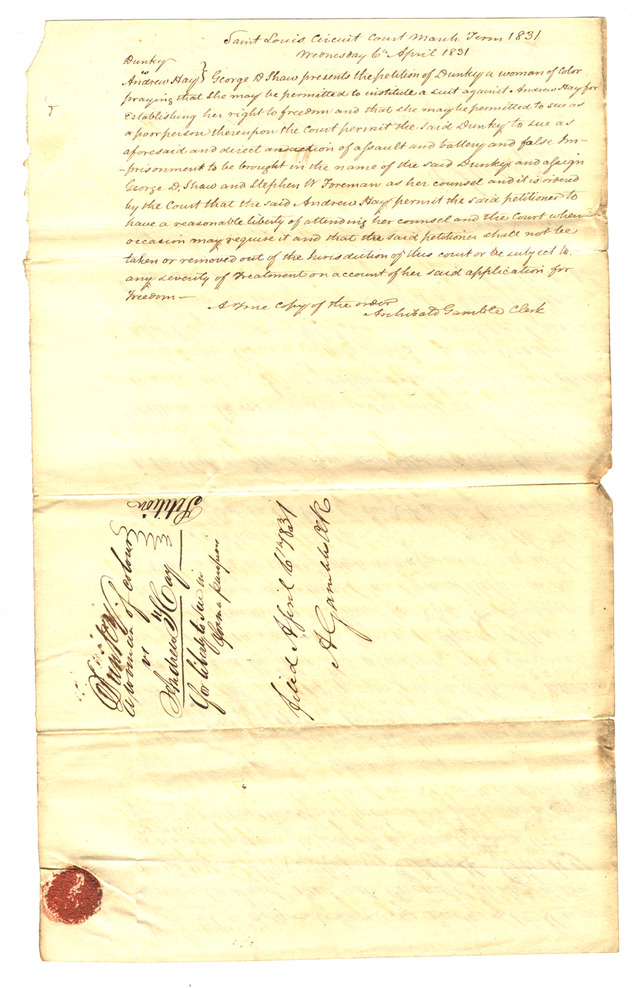 Saint Louis Circuit Court March Term 1831
Wednesday 6th April 1831
Dunky
vs
Andrew Hay } George D Shaw presents the petition of Dunky a woman of Color
praying that she may be permitted to institute a suit against Andrew Hay for
Establishing her right to freedom and that she may be permitted to sue as
a poor person thereupon the Court permit the said Dunky to sue as
aforesaid and direct an action of assault and battery and false Im-
-prisonment to be brought in the name of the said Dunky and assign
George D. Shaw and Stephen W Foreman as her counsel and it is ordered
by the Court that the said Andrew Hay permit the said petitioner to
have a reasonable liberty of attending her counsel and the Court when
occasion may require it and that the said petitioner shall not be
taken or removed out of the Jurisdiction of this court or be subject to
any severity of Treatment on account of her said application for
Freedom —
A true copy of the order
Archibald Gamble Clerk
Dunky
a woman of colour
vs
Andrew Hay
Petition
for liberty to sue in
forma pauperis
filed April 6th 1831
A Gamble Clk